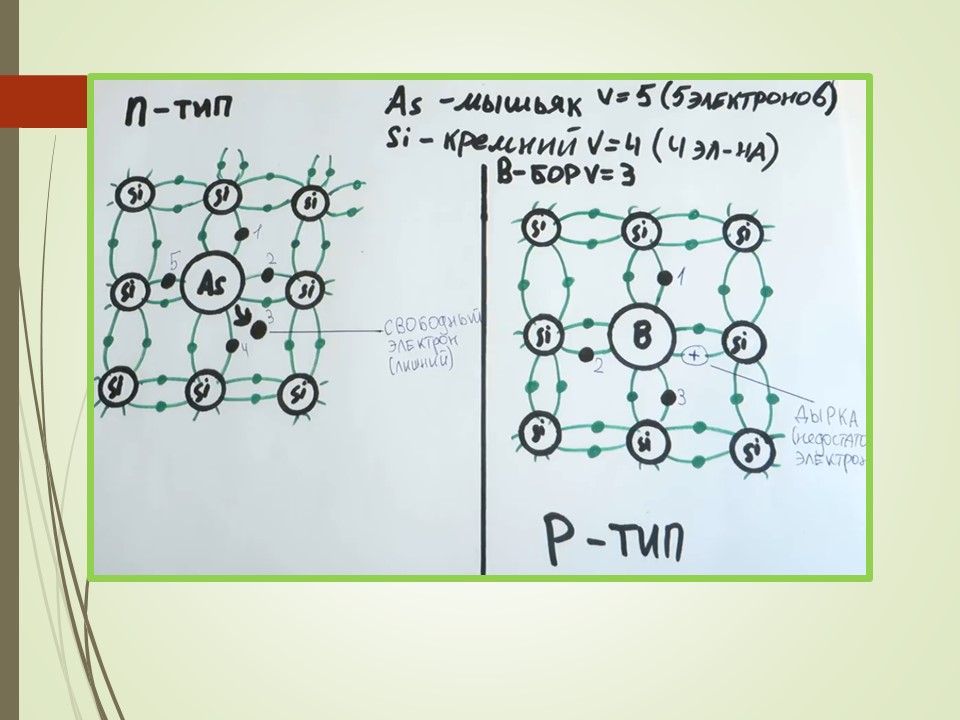 n-тип
As -мышьяк V=5 (5 электронов)
Si - кремний V=4 (4 эл-на)
B-БОР V=3
Si Si Si
1
5 2
Si As Si
3
4
СВОБОДНЫЙ
ЭЛЕКТРОН
(ЛИШНИЙ)
Si Si Si
Si Si Si
1
Si B Si
+
2
3
ДЫРКА
(недостато
ЭЛЕКТРОН
Si Si Si
P-тип